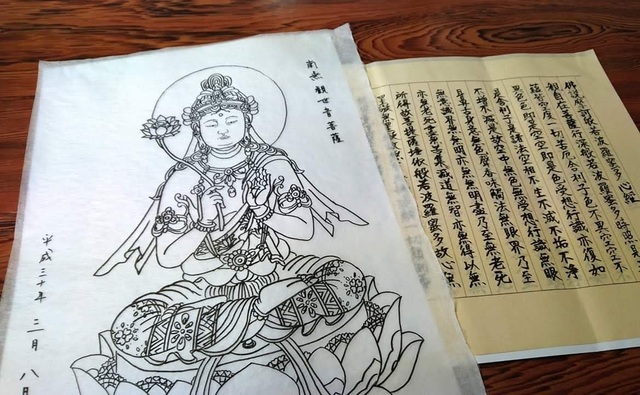 南無観世音菩薩
平成三十年 三月 八
佛説摩訶般若波羅蜜多心経
観自在菩薩行深般若波羅蜜多時照見五
蘊皆空度一切苦厄舎利子色不異空空不
異色色即是空空即是色受想行識亦復如
是舎利子是諸法空相不生不滅不垢不浄
不増不減是故空中無色無受想行識無眼
耳鼻舌身意無色聲香味觸法無眼界乃至
無意識界無無明亦無無明盡乃至無老死
亦無老死盡無苦集滅道無智亦無得以無
所得故菩提薩埵依般若波羅蜜多故心無